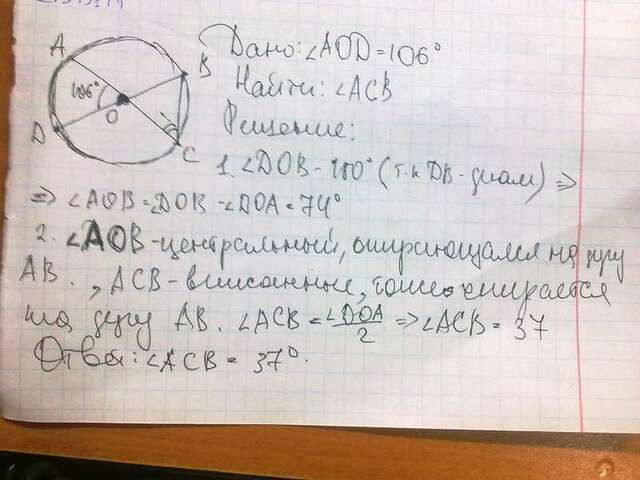 A
B
106°
O
D
C
Дано: ∠AOD = 106°
Найти: ∠ACB
Решение:
1. ∠DOB - 180° (т.к DB - диам) ⇒
⇒ ∠AOB = ∠DOB - ∠DOA = 74°
2. ∠AOB - центральный, опирающийся на дугу
AB. , ACB - вписанный, тоже опирается
на дугу AB. ∠ACB = ∠DOA/2 ⇒ ∠ACB = 37
Ответ: ∠ACB = 37°.